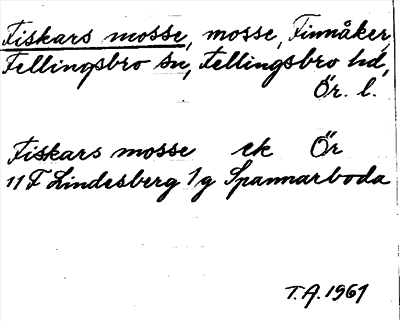 Fiskars mosse, mosse, Finnåker,
Fellingsbro sn, Fellingsbro hd,
Ör. l.
Fiskars mosse ek Ör
11 F Lindesberg 1g Spannarboda
T.A. 1961